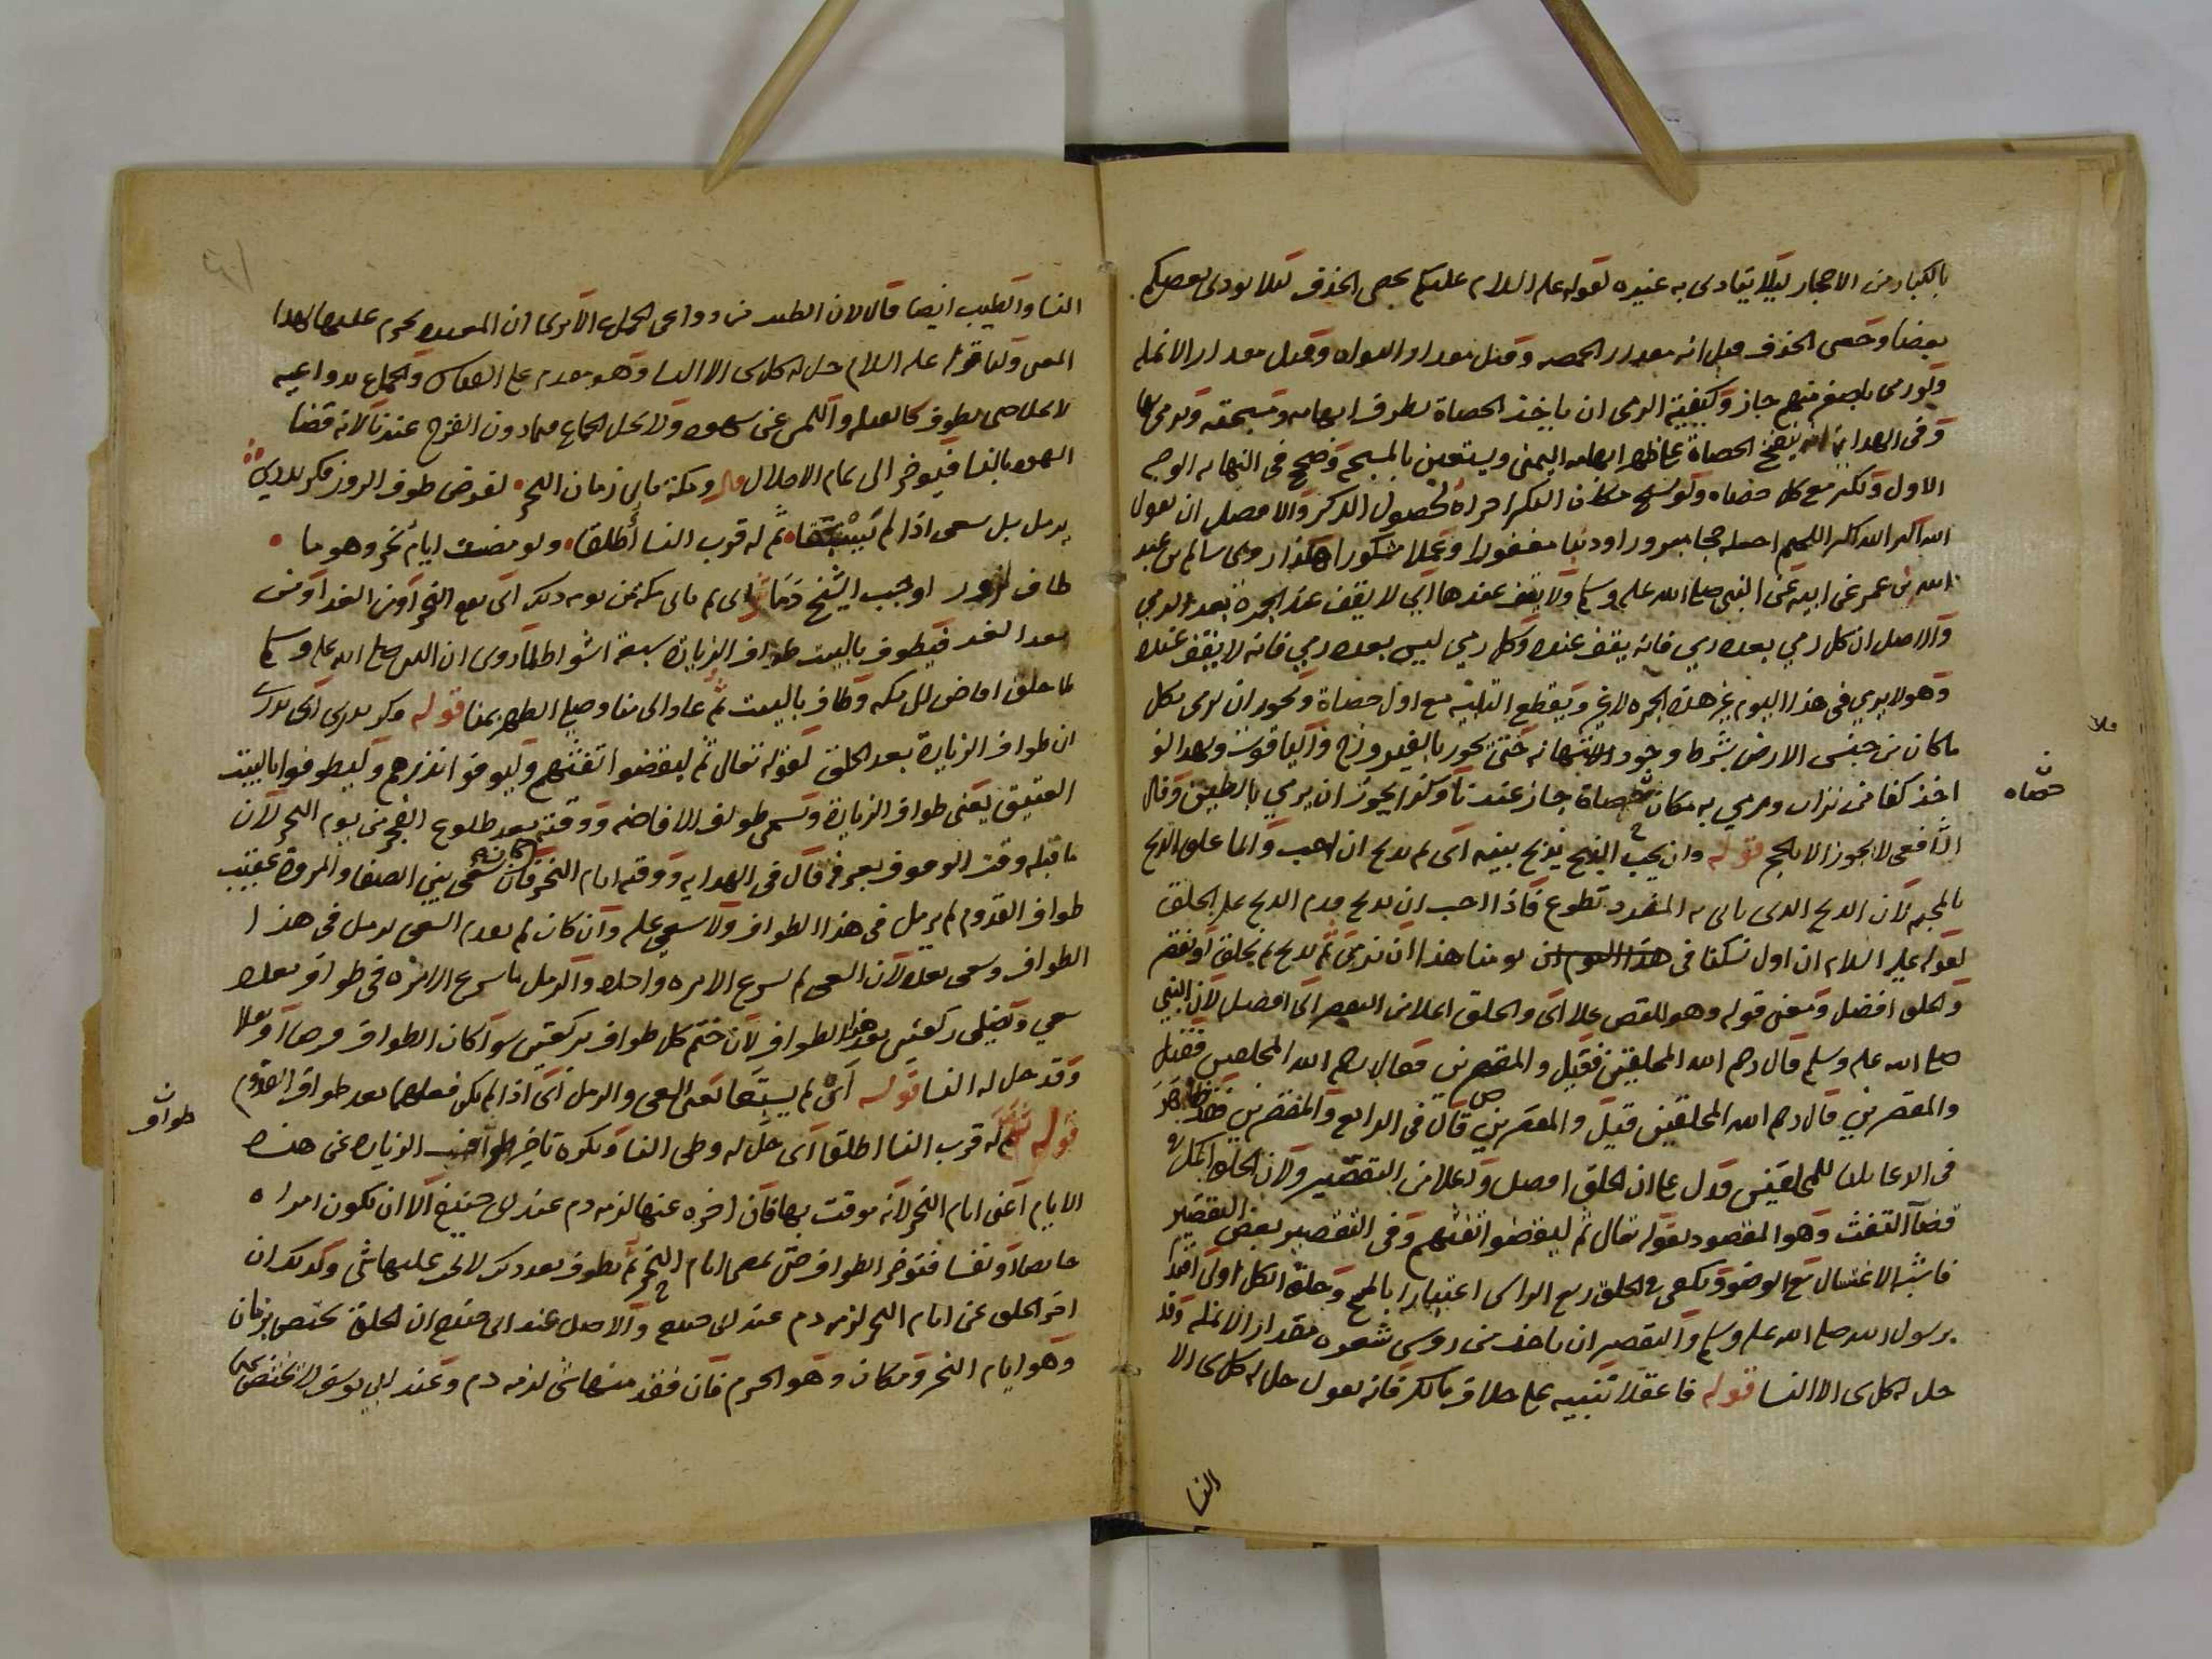 بالكبار من الاحجار ليلا يتاذى به غيره لقوله عليه السلام عليكم بحصى الخذف ليلا يوذى بعضكم
بعضا وحصى الخذف قيل انه مقدار الحمصه وقيل مقدار النواه وقيل مقدار الانمله
ولو رمى باصغر منهم جاز وكيفية الرمى ان ياخذ الحصاة بطرف ابهامه وسبحته ويرمى بها
وفى الهداية انه يضع الحصاة على ظهر ابهامه اليمنى ويستعين بالمسبحه وصحح فى النهايه الوجه
الاول ويكبر مع كل حصاه ولو سبح مكان التكبير اجزاه لحصول الذكر والافضل ان يقول
الله اكبر الله اكبر اللهم اجعله حجا مبرورا وذنبا مغفورا وعملا مشكورا هكذا روى سالم بن عبد
الله بن عمر عن ابيه عن النبي صلى الله عليه وسلم ولا يقف عندها اي لا يقف عند الجمرة بعد الرمي
والاصل ان كل رمي بعده رمي فانه يقف عنده وكل رمي ليس بعده رمي فانه لا يقف عنده
وهو لا يرمي فى هذا اليوم غير هذه الجمره لا غير ويقطع التلبيه مع اول حصاة ويجوز ان يرمى بكل
ما كان من جنس الارض بشرط وجود الاستهانه حتى يجوز بالفيروزج والياقوت ولهذا لو
اخذ كفا من تراب ورمي به مكان حصاة جاز عندنا وكذا يجوز ان يرمي بالطين وقال
الشافعى لا يجوز الا بالحجر قوله وان يحب الذبح يذبح بينه اى ثم يذبح ان احب وانما علق الذبح
بالمحبه لان الذبح الذى ياتى به المفرد تطوع فاذا احب ان يذبح قدم الذبح على الحلق
لقوله عليه السلام ان اول نسكنا فى يومنا هذا ان نرمى ثم نذبح ثم نحلق او نقصر
والحلق افضل ومعنى قوله وهو للقص علا اى والحلق اعلا من التقصير اى افضل لان النبي
صلى الله عليه وسلم قال رحم الله المحلقين فقيل والمقصرين فقال رحم الله المحلقين فقيل
والمقصرين قال رحم الله المحلقين قيل والمقصرين قال فى الرابع والمقصرين فظاهر
فى الدعا ثلثا للمحلقين فدل على ان الحلق افضل واعلا من التقصير ولان الحلق اكمل فى
قضآ التفث وهو المقصود بقوله تعالى ثم ليقضوا تفثهم وفى التقصير بعض التقصير
فاشبه الاغتسال مع الوضوء ويكفى فى الحلق ربع الراس اعتبارا بالمسح وحلق الكل اولى اقتدا
برسول الله صلى الله عليه وسلم والتقصير ان ياخذ من روس شعره مقدار الانمله وقد
حل له كل شى الا النسا قوله فاعقلا تنبيه على خلاف مالك فانه يقول حل له كل شى الا
النسا
حصاه
النسا والطيب ايضا قال لان الطيب من دواعى الجماع الا ترى ان المعتده يحرم عليها لهذا
المعنى ولنا قوله عليه السلام حل له كل شى الا النسا وهو مقدم على القياس والجماع بدواعيه
لا يحل حتى يطوف كالقبله واللمس عن شهوه ولا يحل الجماع فيما دون الفرج عندنا لانه قضا
الشهوه بالنسا فيوخر الى تمام الاحلال قال ومكة ياتى زمان النحر لفرض طوف الروز فكر بلدي
يرمل بل سعى اذا لم يسبقا ثم له قرب النسا أطلقا ولو مضت ايام نحر وهو ما
طاف لزور اوجب الشيخ دما اى ثم ياتى مكة من يومه ذلك اى يوم النحر او من الغد او من
بعد الغد فيطوف بالبيت طواف الزيارة سبعة اشواط لما روى ان النبي صلى الله عليه وسلم
لما حلق افاض الى مكه وطاف بالبيت ثم عاد الى منا وصلى الظهر بمنا قوله
ان طواف الزيارة بعد الحلق لقوله تعالى ثم ليقضوا تفثهم وليوفوا نذرهم وليطوفوا بالبيت
العتيق يعنى طواف الزيارة وتسمى طواف الافاضه ووقته بعد طلوع الفجر من يوم النحر لان
ما قبله وقت الوقوف بعرفه قال فى الهدايه ووقته ايام النحر فان كان سعى بين الصفا والمروة عقيب
طواف القدوم لم يرمل فى هذا الطواف ولا سعى عليه وان كان لم يقدم السعى يرمل فى هذا
الطواف وسعى بعده لان السعى لم يشرع الا مره واحده والرمل ما شرع الا مره فى طواف بعده
سعي ويصلى ركعتين بعد هذا الطواف لان ختم كل طواف بركعتين سوآ كان الطواف فرضا او نفلا
وقد حل له النسا قوله اى لم يسبقا يعنى السعى والرمل اى اذا لم يكن فعلهما بعد طواف القدوم
قوله ثم له قرب النسا اطلقا اى حل له وطى النسا ويكره تاخير طواف الزياره عن هذه
الايام اعنى ايام النحر لانه موقت بها فان اخره عنها لزمه دم عند ابى حنيفه الا ان تكون امراه
حايضا او نفسا فتوخر الطواف حتى تمضى ايام النحر ثم تطوف بعد ذلك لا يجب عليها شى وكذلك ان
اخر الحلق عن ايام النحر لزمه دم عند ابى حنيفه والاصل عند ابى حنيفه ان الحلق يختص بزمان
وهو ايام النحر ومكان وهو الحرم فان فقد منهما شى لزمه دم وعند ابى يوسف لا يختص بهما
طواف